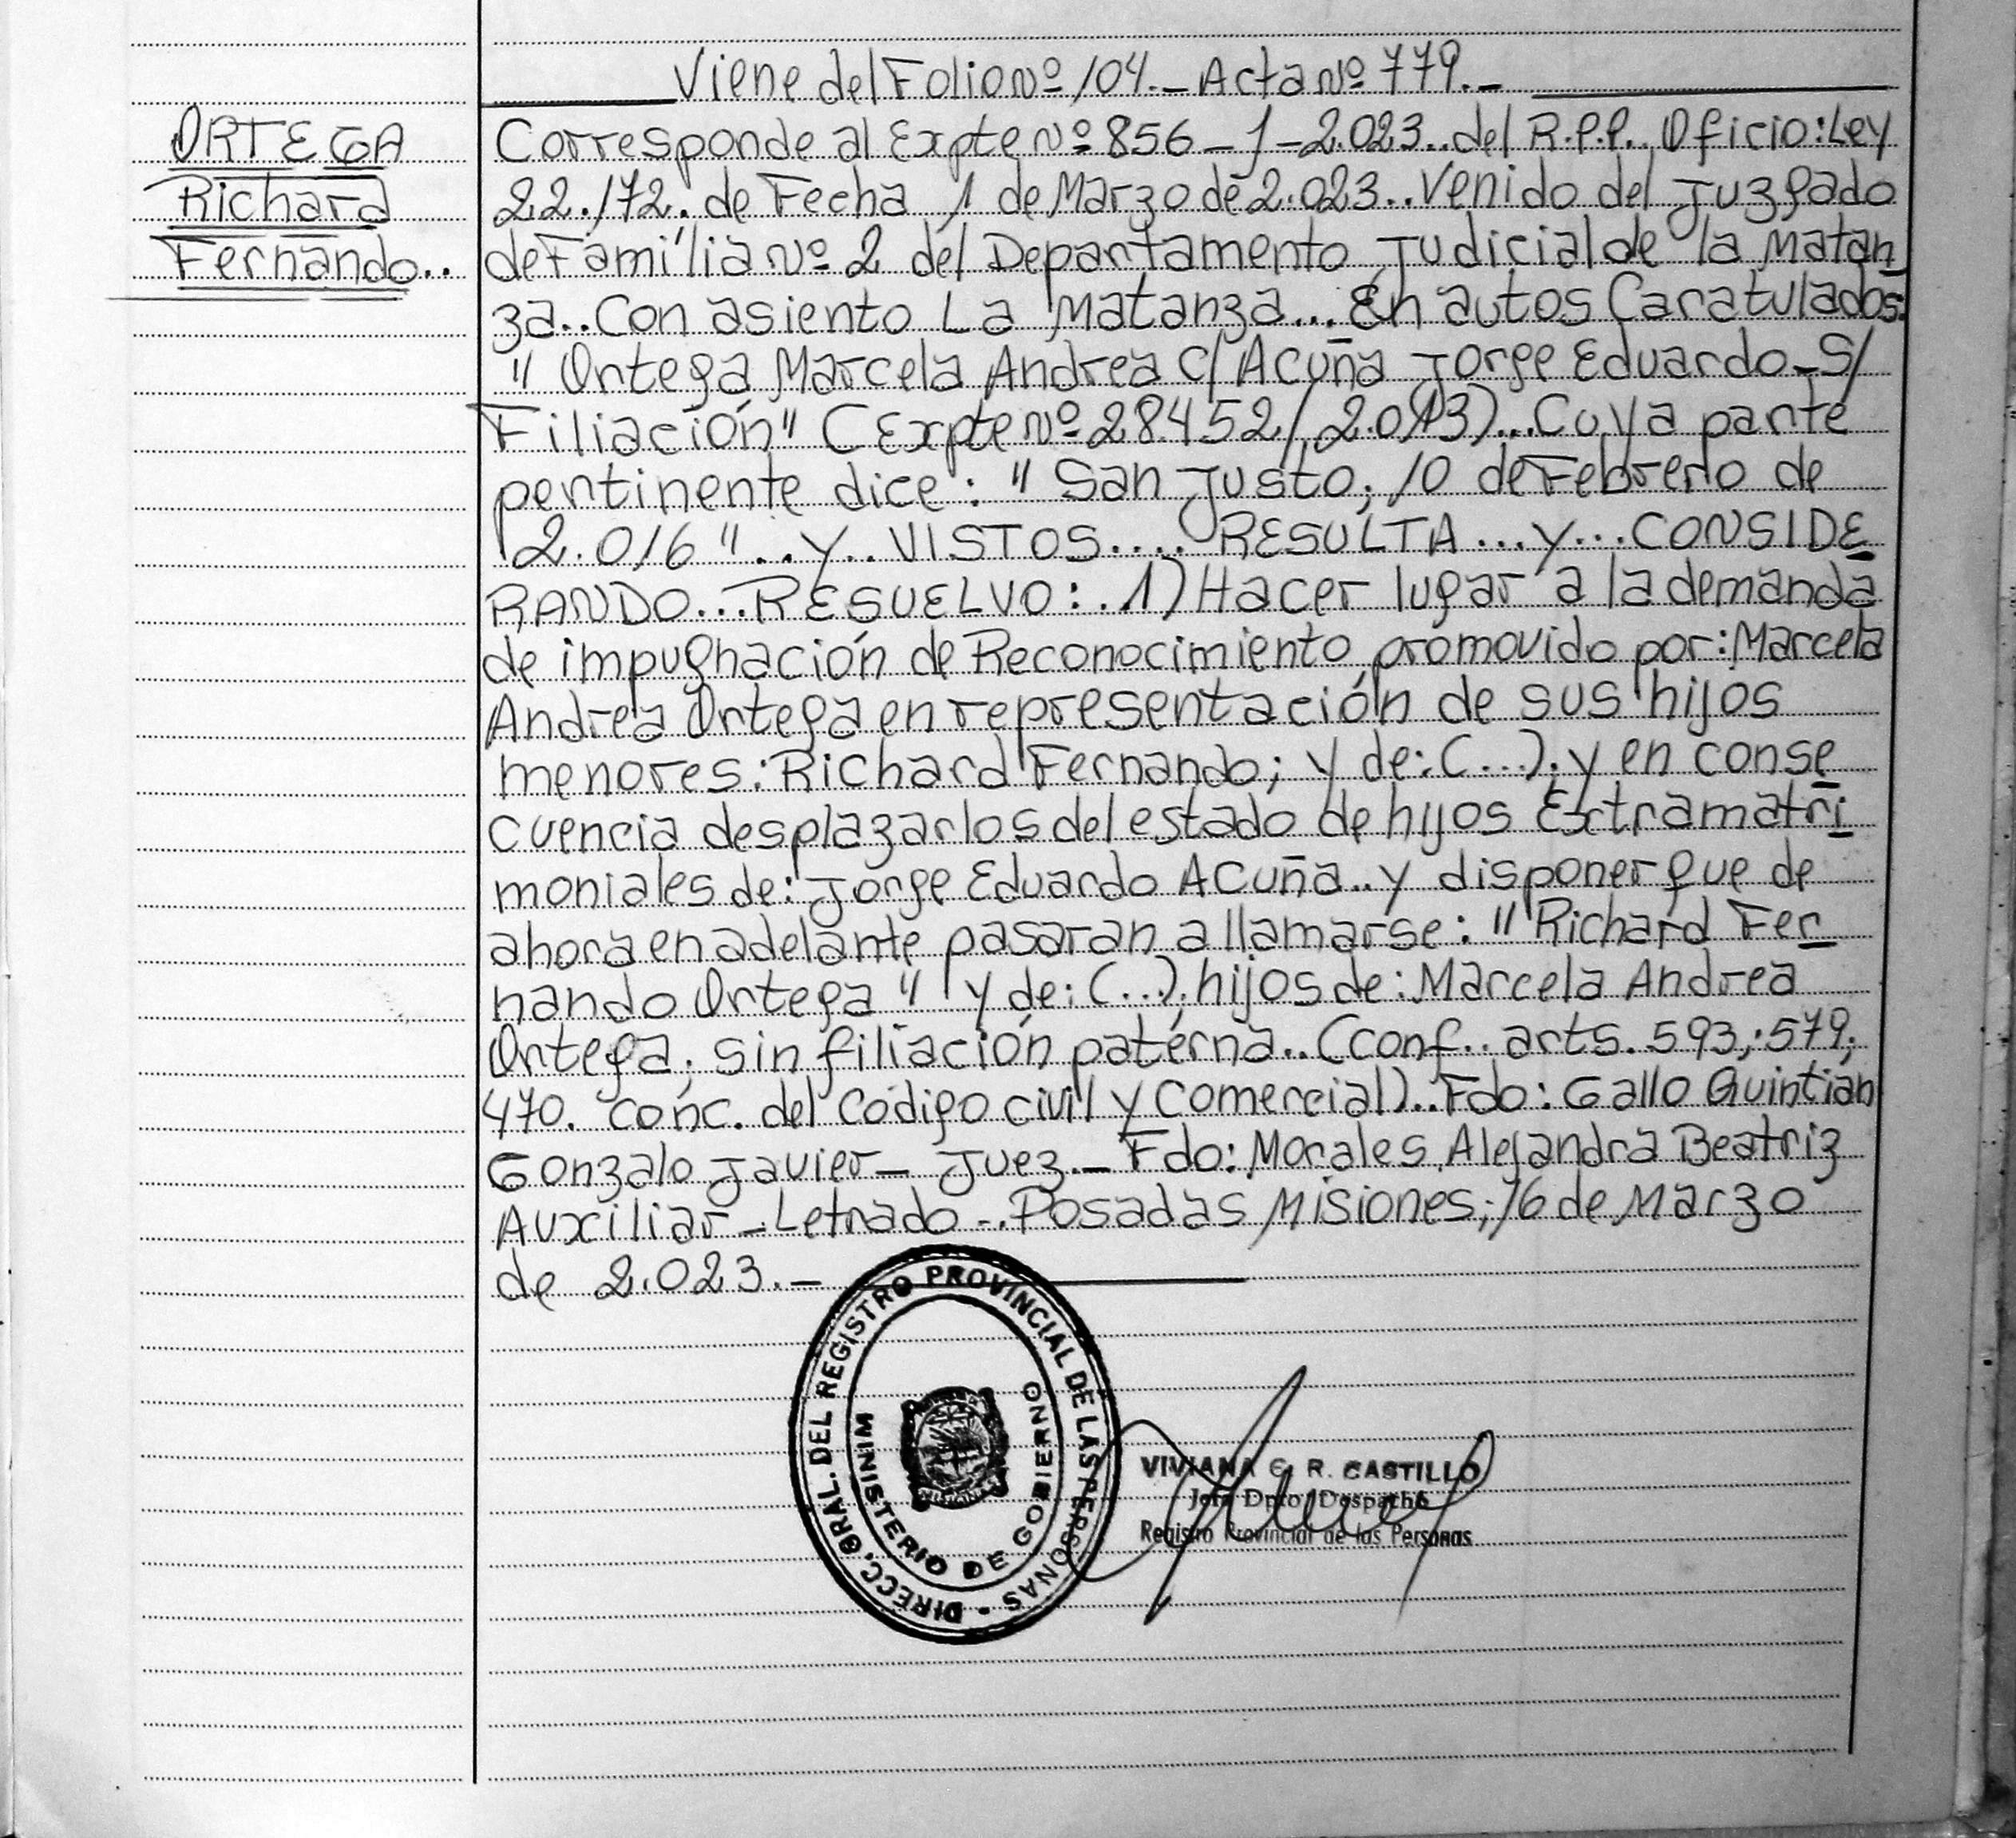 Viene del Folio Nº 104._ Acta Nº 779._
ORTEGA
Richard
Fernando..
Corresponde al Expte Nº 856_J_2.023..del R.P.P.. Oficio: Ley
22.172. de Fecha 1 de Marzo de 2.023..Venido del Juzgado
de Familia Nº 2 del Departamento Judicial de la Matan
za..Con asiento La Matanza...En autos Caratulados:
" Ortega Marcela Andrea C/ Acuña Jorge Eduardo_S/
Filiación" (Expte Nº 28.452/2.013)...Cuya parte
pertinente dice: " San Justo; 10 de Febrero de
2.016"..Y..VISTOS.... RESULTA...Y...CONSIDE
RANDO...RESUELVO:.1) Hacer lugar a la demanda
de impugnación de Reconocimiento promovido por: Marcela
Andrea Ortega en representación de sus hijos
menores: Richard Fernando; y de: (...); y en conse
cuencia desplazarlos del estado de hijos Extramatri
moniales de: Jorge Eduardo Acuña..y disponer que de
ahora en adelante pasaran a llamarse: "Richard Fer
nando Ortega" y de: (...); hijos de: Marcela Andrea
Ortega; sin filiación paterna..(conf.. arts. 593; 579;
470. conc. del Codigo civil y Comercial)..Fdo: Gallo Quintian
Gonzalo Javier_ Juez._ Fdo: Morales Alejandra Beatriz
Auxiliar_Letrado_.. Posadas Misiones; 16 de Marzo
de 2.023._
DIRECC. GRAL. DEL REGISTRO PROVINCIAL DE LAS PERSONAS -
MINISTERIO DE GOBIERNO
MISIONES
VIVIANA E. R. CASTILLO
Jefa Dpto. Despacho
Registro Provincial de las Personas